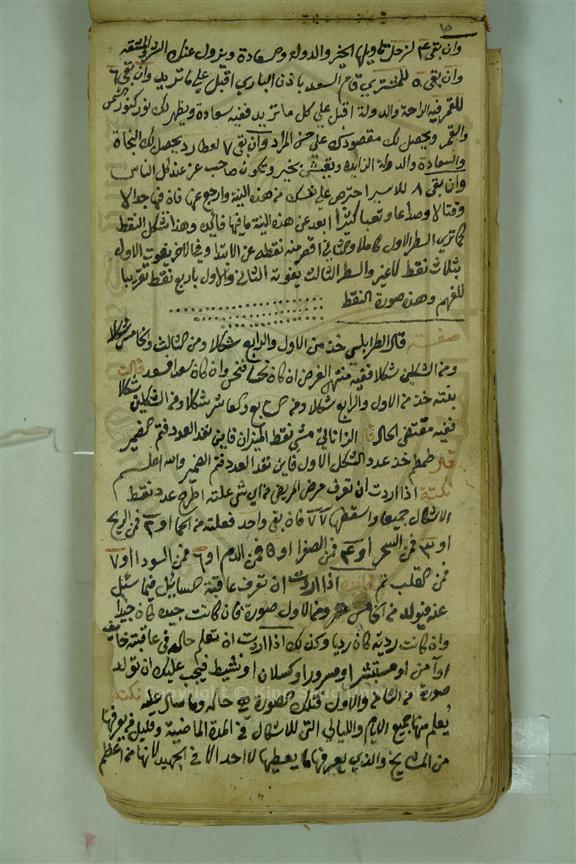 ١٥
وان بقى ٤ لزحل تاويلها الخير والدوله وسعادة ويزول عنك الهم والمشقه
وان بقى ٥ للمشتري قام السعد باذن الباري اقبل على ما تريد وان بقى ٦
للقمر فيه الراحة والدولة اقبل على كل ما تريد ففيه سعادة ويظهر لك نور كنور الشمس
والقمر ويحصل لك مقصودك على حسن المراد وان بقى ٧ لعطارد يحصل لك النجاة
والسعادة والدولة الزايده وتعيش بخير وتكون صاحب عز عند كل الناس
وان بقى ٨ للاسير احترص على نفسك من هذه النية وارجع عنها فان فيها جدالا
وقتالا وصداعا وتعبا كثيرا ابعد عن هذه النية ما فيها فايده وهذا شكل النقط
كما ترى السطر الاول كاملا وحده اقصر منه نقطه عن الابتدا وفي الاخر يفوت الاول
بثلاث نقط لا غير والسطر الثالث يفوته الثاني والاول باربع نقط تقريبا
للفهم وهذه صورة النقط
صفه قال الطرابلسي خذ من الاول والرابع شكلا ومن الثالث والخامس شكلا
ومن الشكلين شكلا ففيه منتهى الغرض ان كان نحسا فنحس وان كان سعدا فسعد قالت
بعثه خذ من الاول والرابع شكلا ومن شكلا ومن الشكلين
ففيه مقتضى الحال قال الزناتي مشي نقط الميزان فاين نفد العدد فثم الضمير
قال طمطم خذ عدد الشكل الاول فاين نفد العدد فثم الضمير والله اعلم
نكتة اذا اردت ان تعرف مرض المريض من اي شي علته اطرح عدد نقط
الاشكال جميعا واسقطها ٧ ٧ فان بقى واحد فعلته من الحما او ٢ فمن الريح
او ٣ فمن السحر او ٤ فمن الصفرا او ٥ فمن الدم او ٦ فمن السودا او ٧
فمن القلب تم فائده اذا اردت ان تعرف عاقبة مسائل فيما سئل
عنه فيولد من الخامس عشر ومن الاول صورة فان كانت جيده كان جيدا
وان كانت رديه كان رديا وكذلك اذا اردت ان تعلم حاله في عاقبته خايف
او آمن او مستبشر او مسرور او كسلان او نشيط فيجب عليك ان تولد
صورة من الثامن والاول فتلك الصورة هي حاله وما سال عنه نكتة
يعلم منها جميع الايام والليالي التي للاشكال في المدة الماضية وقليل من يعرفها
من المشايخ والذي يعرفها ما يعطيها لاحد الا في الجهيد لانها من اعظم